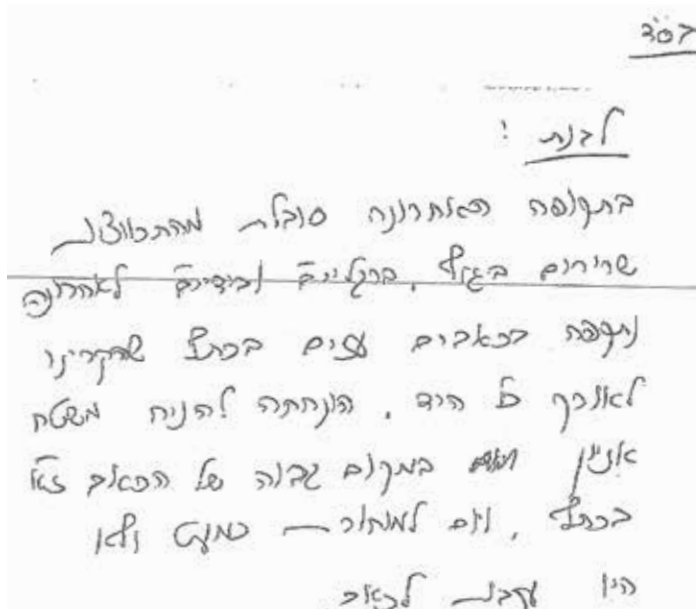 בס"ד
לבנת :
בתקופה האחרונה סובלת מהתכווצות
שרירים בגוף, ברגליים ובידיים לאחרונה
נתקפה בכאבים עזים בכתף שהקרינו
לאורך כל היד. הונחתה להניח משטח
במקום גבוה של הכאב
בכתף, ויום למחרת כמעט ולא
היו עקבות לכאב